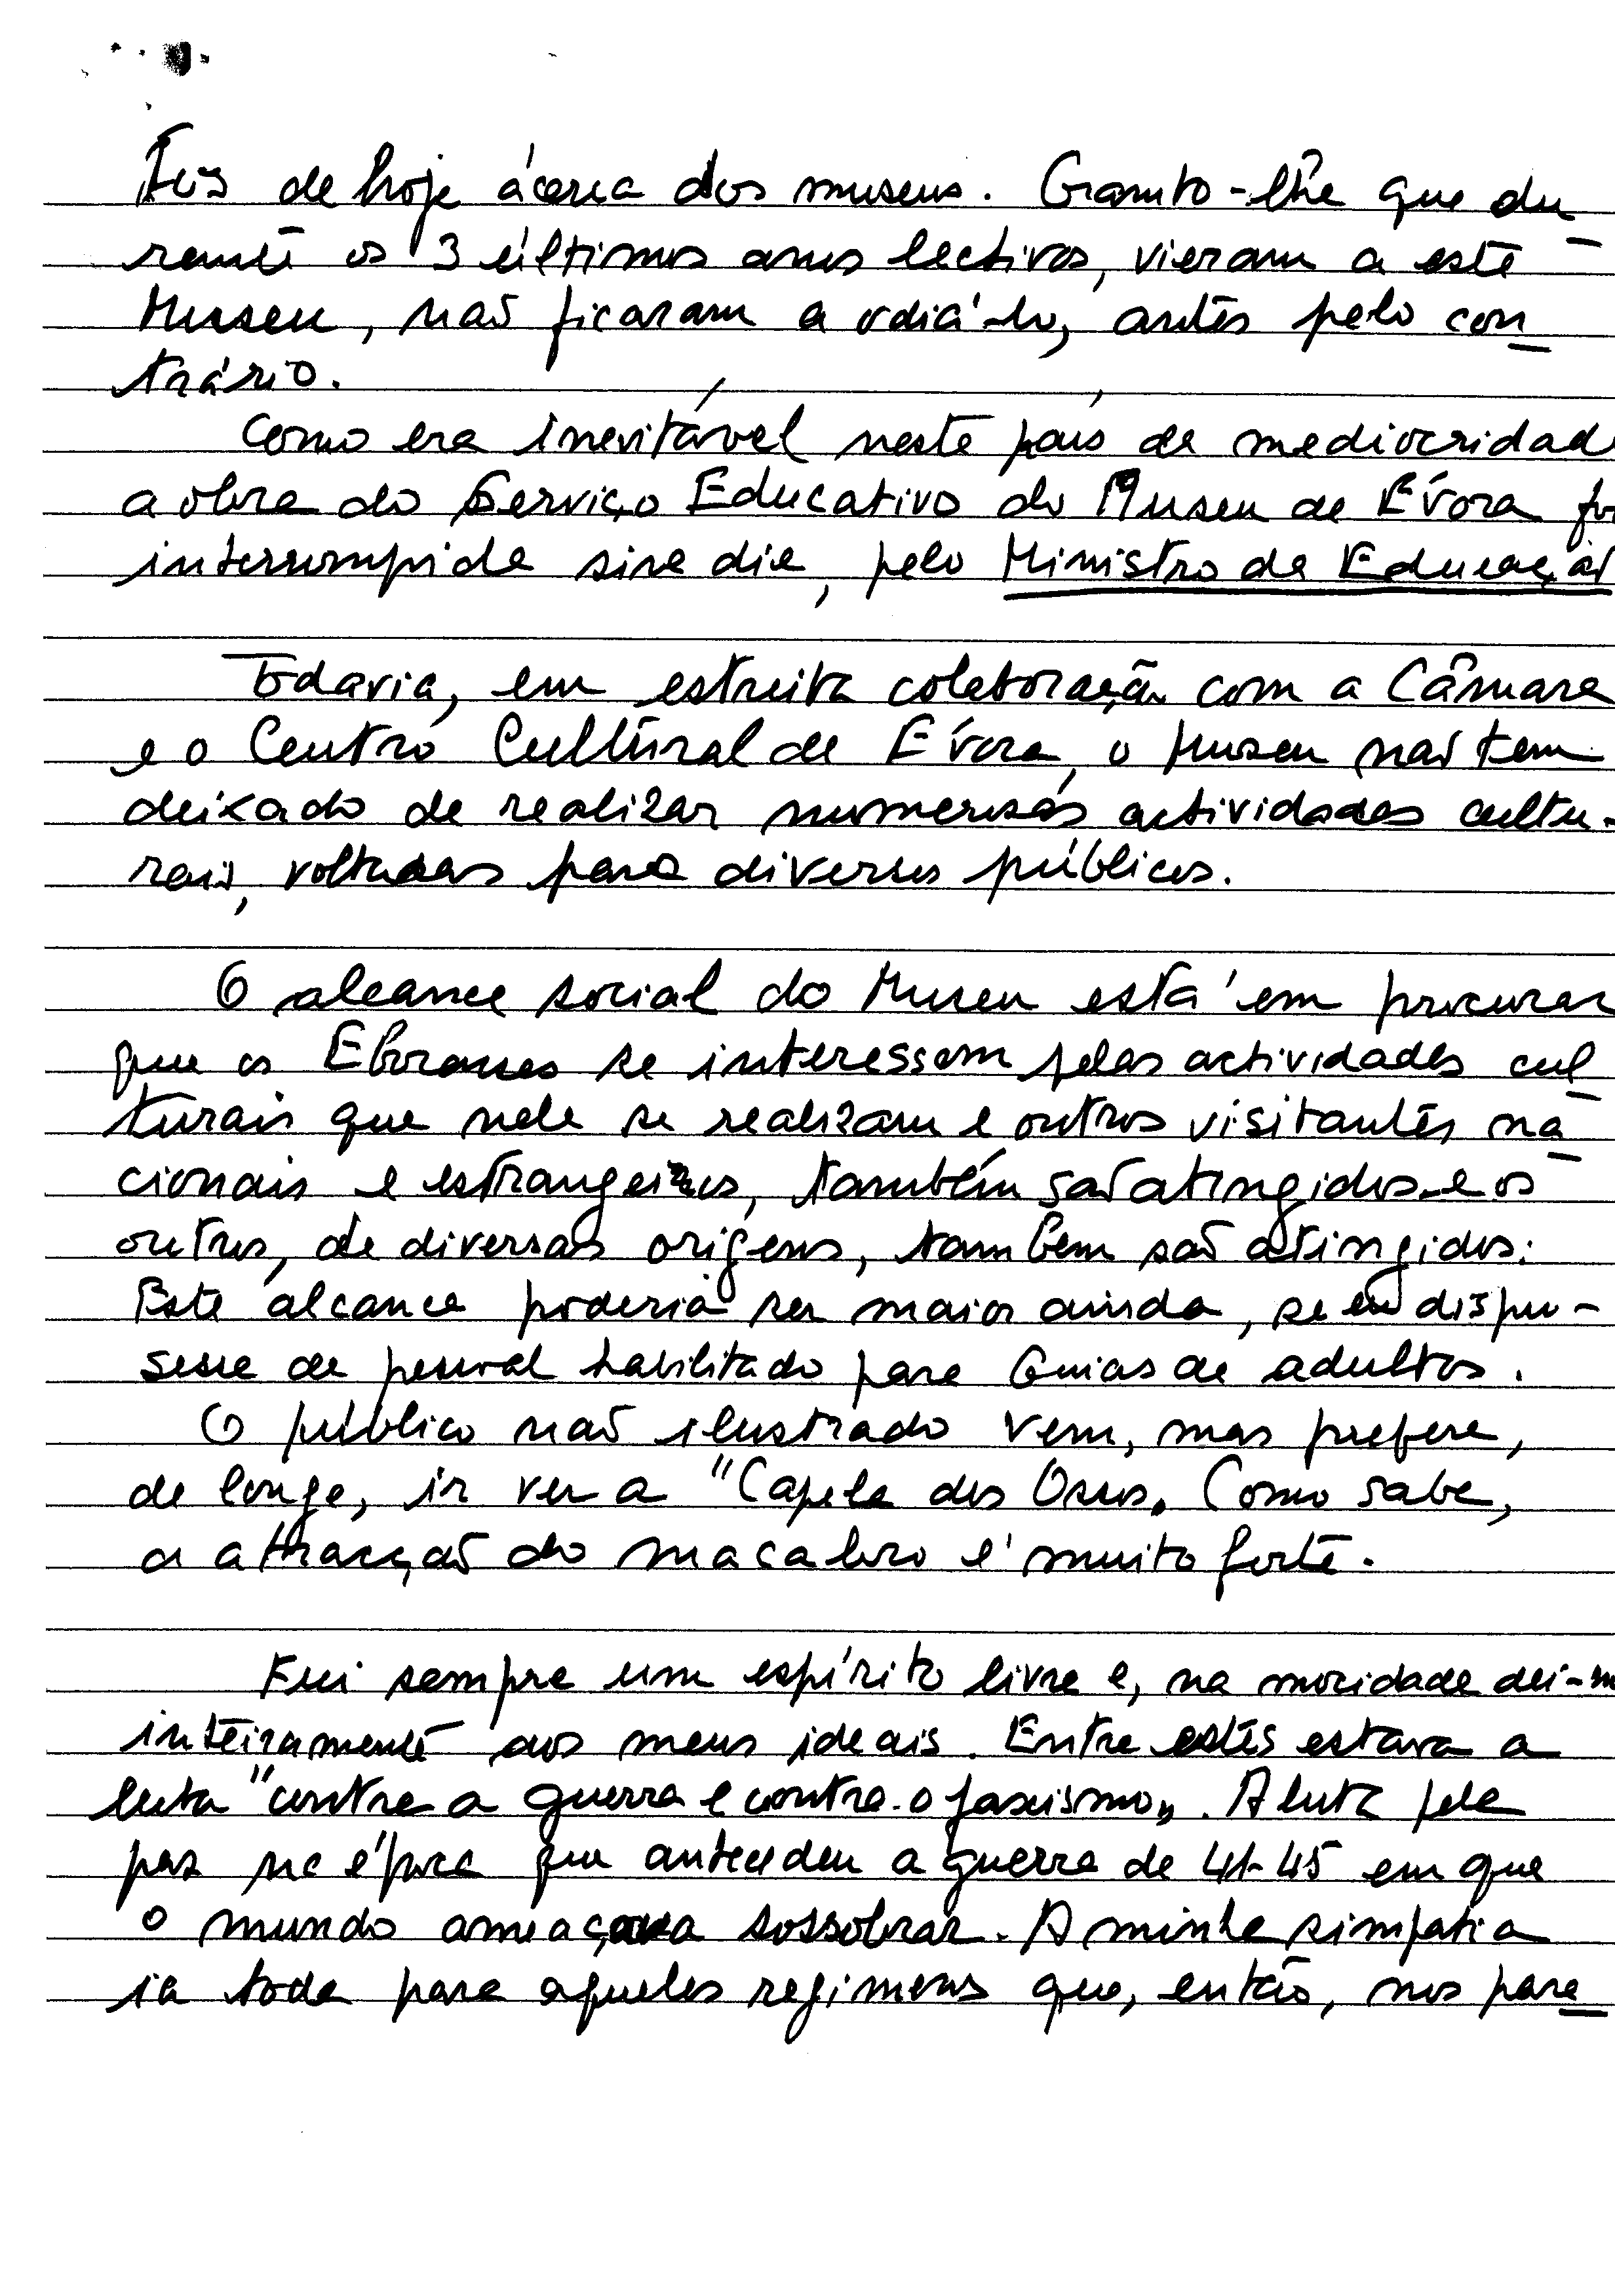 tos de hoje ácerca dos museus. Garanto-lhe que du
rante os 3 últimos anos lectivos, vieram a este
Museu, não ficaram a odiá-lo, antes pelo con
trário.
Como era inevitável neste país de mediocridad
a obra do Serviço Educativo do Museu de Évora fo
interrompida sine die, pelo Ministro da Educaçã
Todavia, em estreita colaboração com a Câmara
e o Centro Cultural de Évora, o Museu não tem
deixado de realizar numerosas actividades cultu-
rais, voltadas para diversos públicos.
O alcance social do Museu está em procurar
que os Eborenses se interessem pelas actividades cul
turais que nele se realizam e outros visitantes na
cionais e estrangeiros, também são atingidos e os
outros, de diversas origens, também são atingidos.
Este alcance poderia ser maior ainda, se eu dispu-
sesse de pessoal habilitado para Guias de adultos.
O público não ilustrado vem, mas prefere,
de longe, ir ver a "Capela dos Ossos. Como sabe,
a atracção do macabro é muito forte.
Fui sempre um espírito livre e, na mocidade dei-m
inteiramente aos meus ideais. Entre estes estava a
luta "contra a guerra e contra o fascismo". A luta pela
paz na época que antecedeu a guerra de 41-45 em que
o mundo ameaçava sossobrar. A minha simpatia
ia toda para aqueles regimens que, então, nos pare